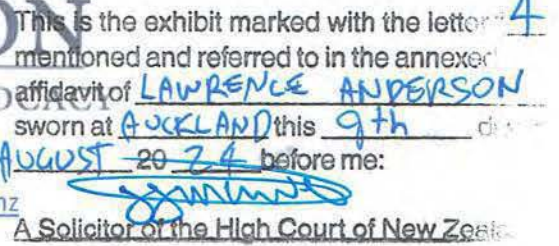 ON
This is the exhibit marked with the letter "4
mentioned and referred to in the annexed
affidavit of LAWRENCE ANDERSON
sworn at AUCKLAND this 9th d
AUGUST 20 24 before me:
nz
A Solicitor of the High Court of New Zeala